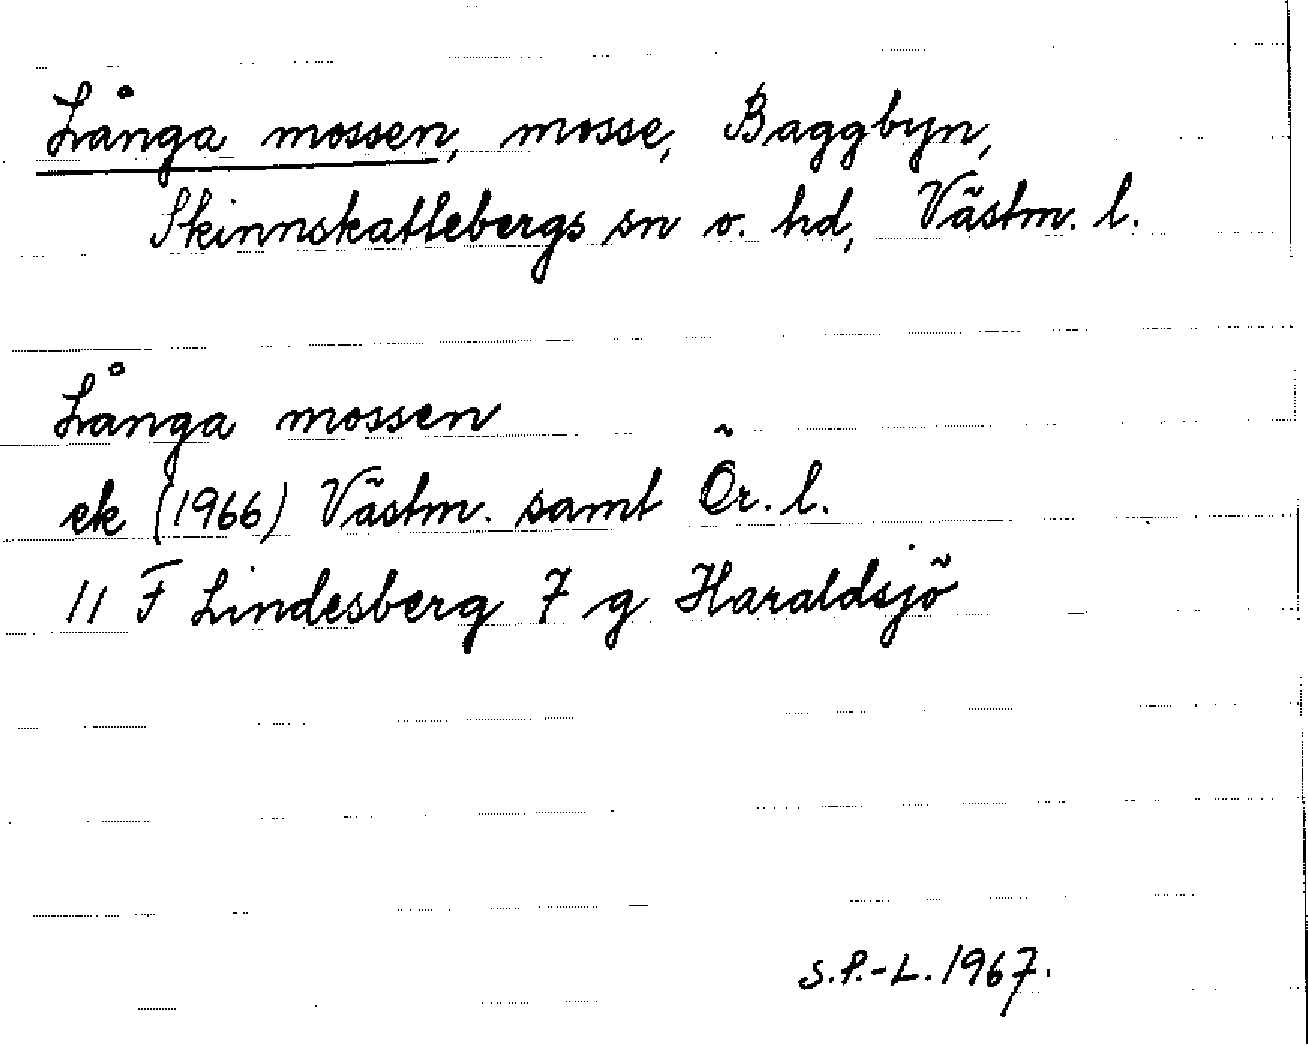 Långa mossen, mosse, Baggbyn,
Skinnskattebergs sn o. hd, Västm. l.
Långa mossen
ek (1966) Västm. samt Ör. l.
11 F Lindesberg 7 g Haraldsjö
S.P.-L. 1967.